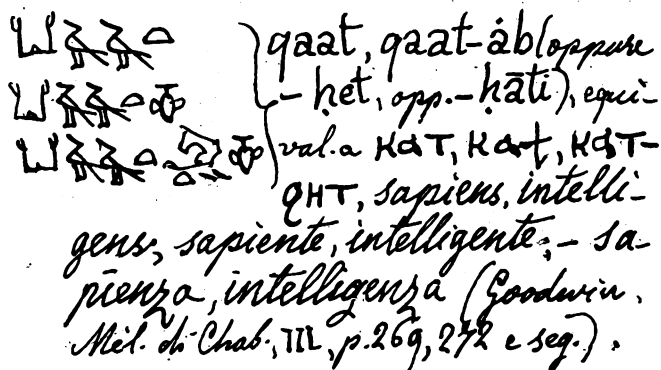 𓂓𓄿𓄿𓏏 qaat, qaat-ȧb (oppure
𓂓𓄿𓄿𓏏𓄣 -ḥet, opp. -ḥāti), equi-
𓂓𓄿𓄿𓏏𓄂𓏏𓄣 val. a ⲕⲁⲧ, ⲕⲁϯ, ⲕⲁⲧ-
ϩⲏⲧ, sapiens, intelli-
gens; sapiente, intelligente; - sa-
pienza, intelligenza (Goodwin,
Mél. di Chab., III, p. 269, 272 e seg.).